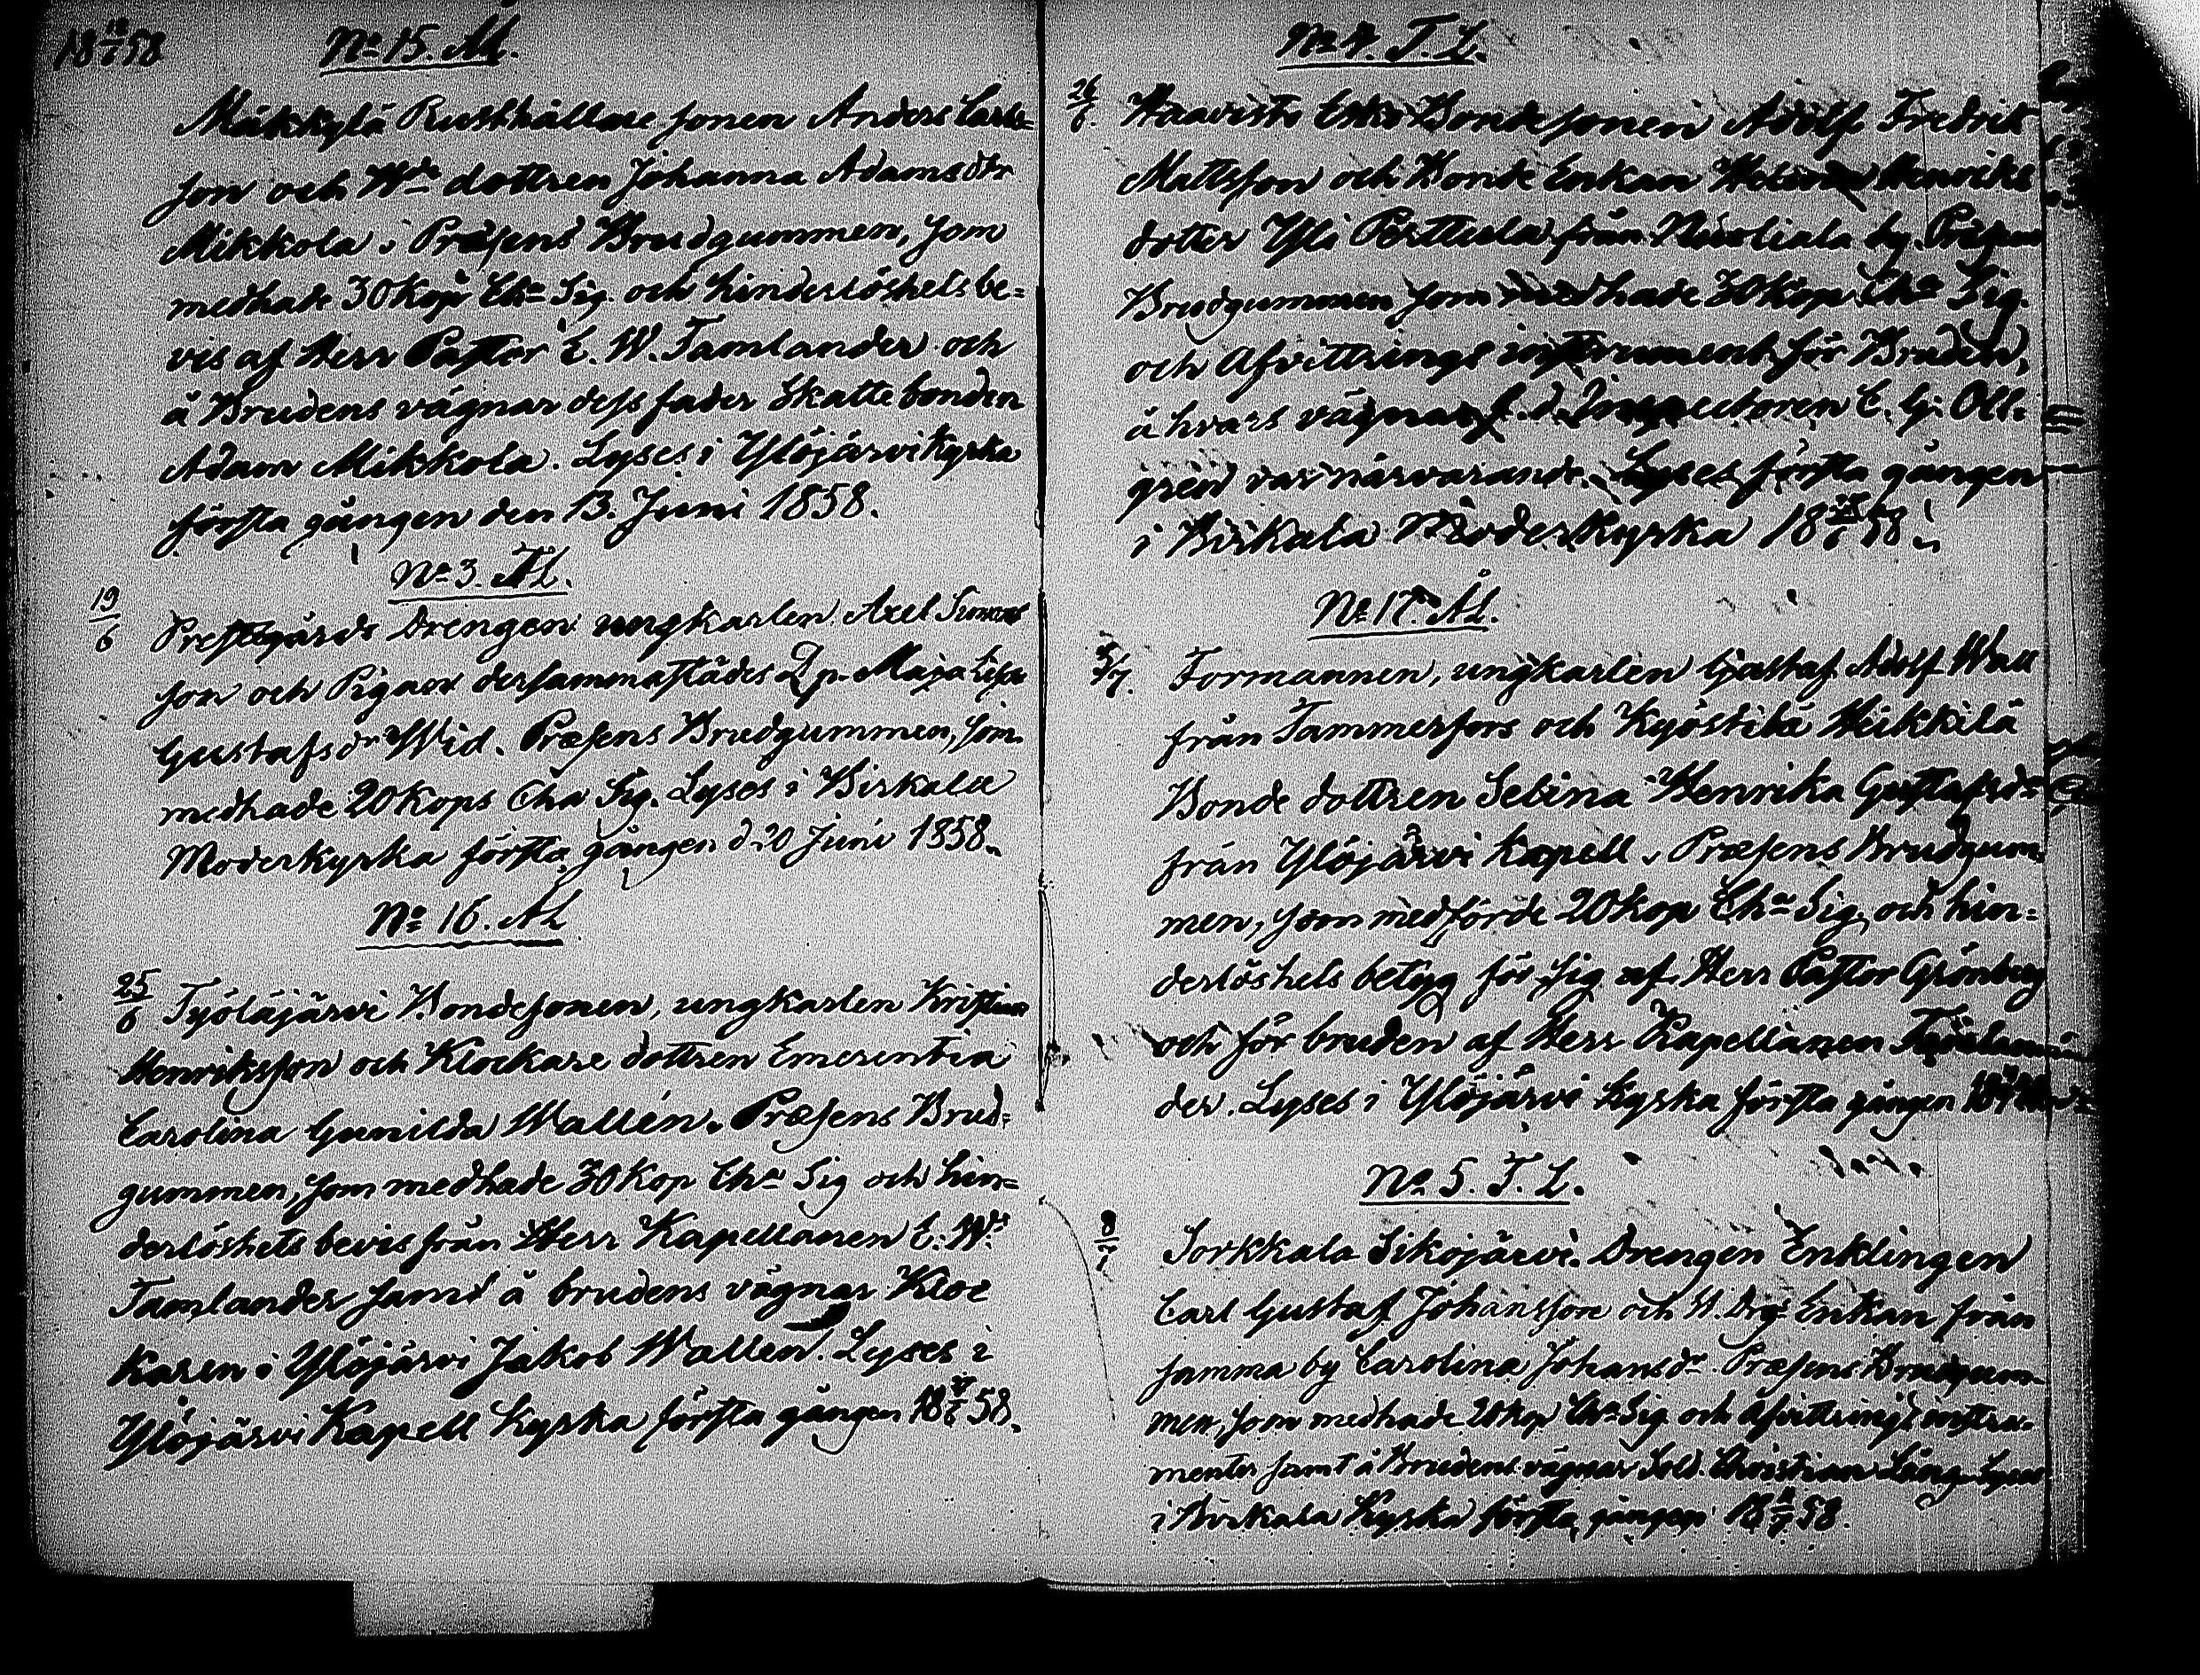 18 12/6 58 No 15. ÅL.
Mäkkylä Rusthållare sonen Anders Carls=
son och Wde dottren Johanna Adamsdtr
Mikkola. Præsens Brudgummen, som
medhade 30 Kop Cha Sig. och hinderlöshets be=
vis af Herr Pastor E. W. Tamlander och
å Brudens vägnar dess fader Skattebonden
Adam Mikkola. Lyses i Ylöjärvi kyrka
första gången den 13. Juni 1858.
No 3. TL.
19/6 Prestgårds Drengen ungkarlen Axel
son och Pigan dersammastädes Qp. Maja Lisa
Gustafsdr Wid. Præsens Brudgummen, som
medhade 20 Kops Cha Sig. Lyses i Birkala
Moderkyrka första gången d. 20 Juni 1858.
No 16. ÅL
25/6 Työläjärvi Bondesonen, ungkarlen Kristian
Henriksson och Klockare dottren Emerentia
Carolina Gunilda Wallén. Præsens Brud=
gummen, som medhade 30 Kop Cha Sig och hin=
derlöshets bevis från Herr Kapellanen E. W.
Tamlander samt å brudens vägnar Kloc
karen i Ylöjärvi Jakob Wallén. Lyses i
Ylöjärvi Kapell Kyrka första gången 18 27/6 58.
No 4. T. L.
26/6. Haavisto Bondesonen Adolf Fredrik
Mattsson och Bonde Enkan Henriks
dotter Yli Perttula från Nuoliala by. Præsens
Brudgummen som medhade 30 Kop Cha Sig.
och Afvittrings instrument för Bruden,
å hvars vägnar f. d. Inspectoren C. G. Oll.
gren var närvarande. Lyses första gången
i Birkala Moderkyrka 18 27/6 58.
No 17. ÅL.
3/7. Formannen, ungkarlen Gustaf Adolf Wall
från Tammerfors och Kyöstilä Heikkilä
Bonde dottren Selina Henrika Gustafsdr
från Ylöjärvi Kapell. Præsens Brudgum=
men, som medförde 20 Kop Cha Sig och hin=
derlöshets betyg för sig af Herr Pastor Grönberg
och för bruden af Herr Kapellanen
der. Lyses i Ylöjärvi Kyrka första gången
No 5. T. L.
8/7 Sorkkala Sikojärvi. Drengen Enklingen
Carl Gustaf Johansson och Drg. Enkan från
samma by Carolina Johansdr. Præsens Brudgum=
men, som medhade 20 Kop Cha Sig och Afvittrings instru=
menter samt å Brudens vägnar Sold. Christian Lång. Lyses
i Birkala Kyrka första gången 18 /7 58.